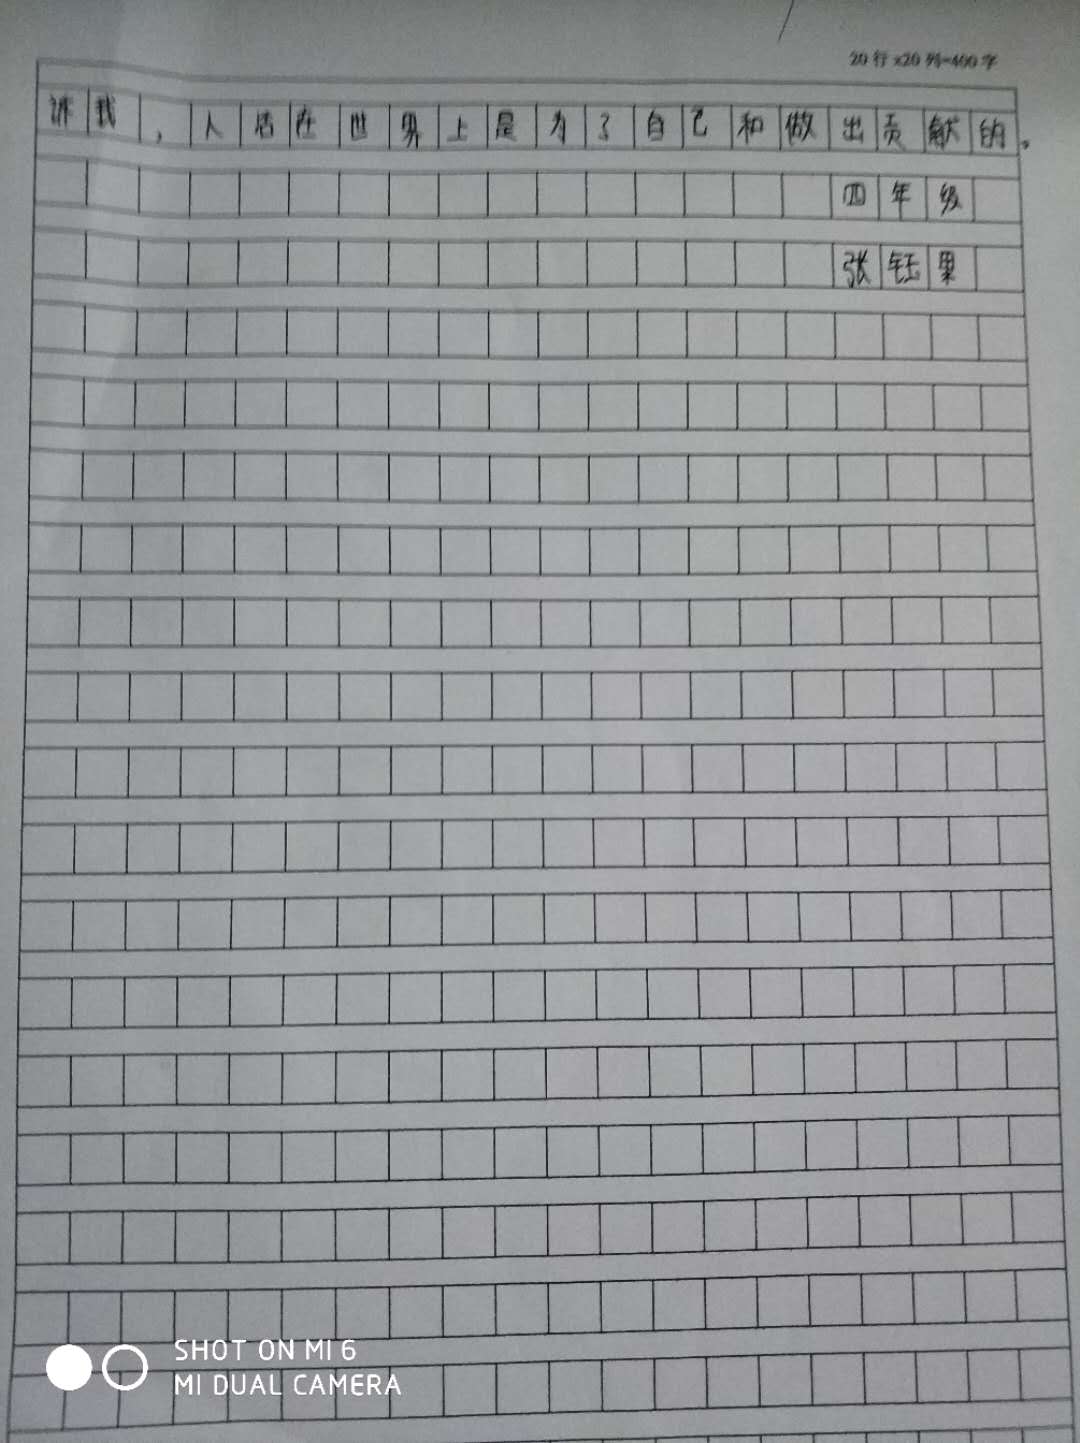 20行×20列=400字
诉我，人活在世界上是为了自己和做出贡献的。
四年级
张钰果
SHOT ON MI 6
MI DUAL CAMERA